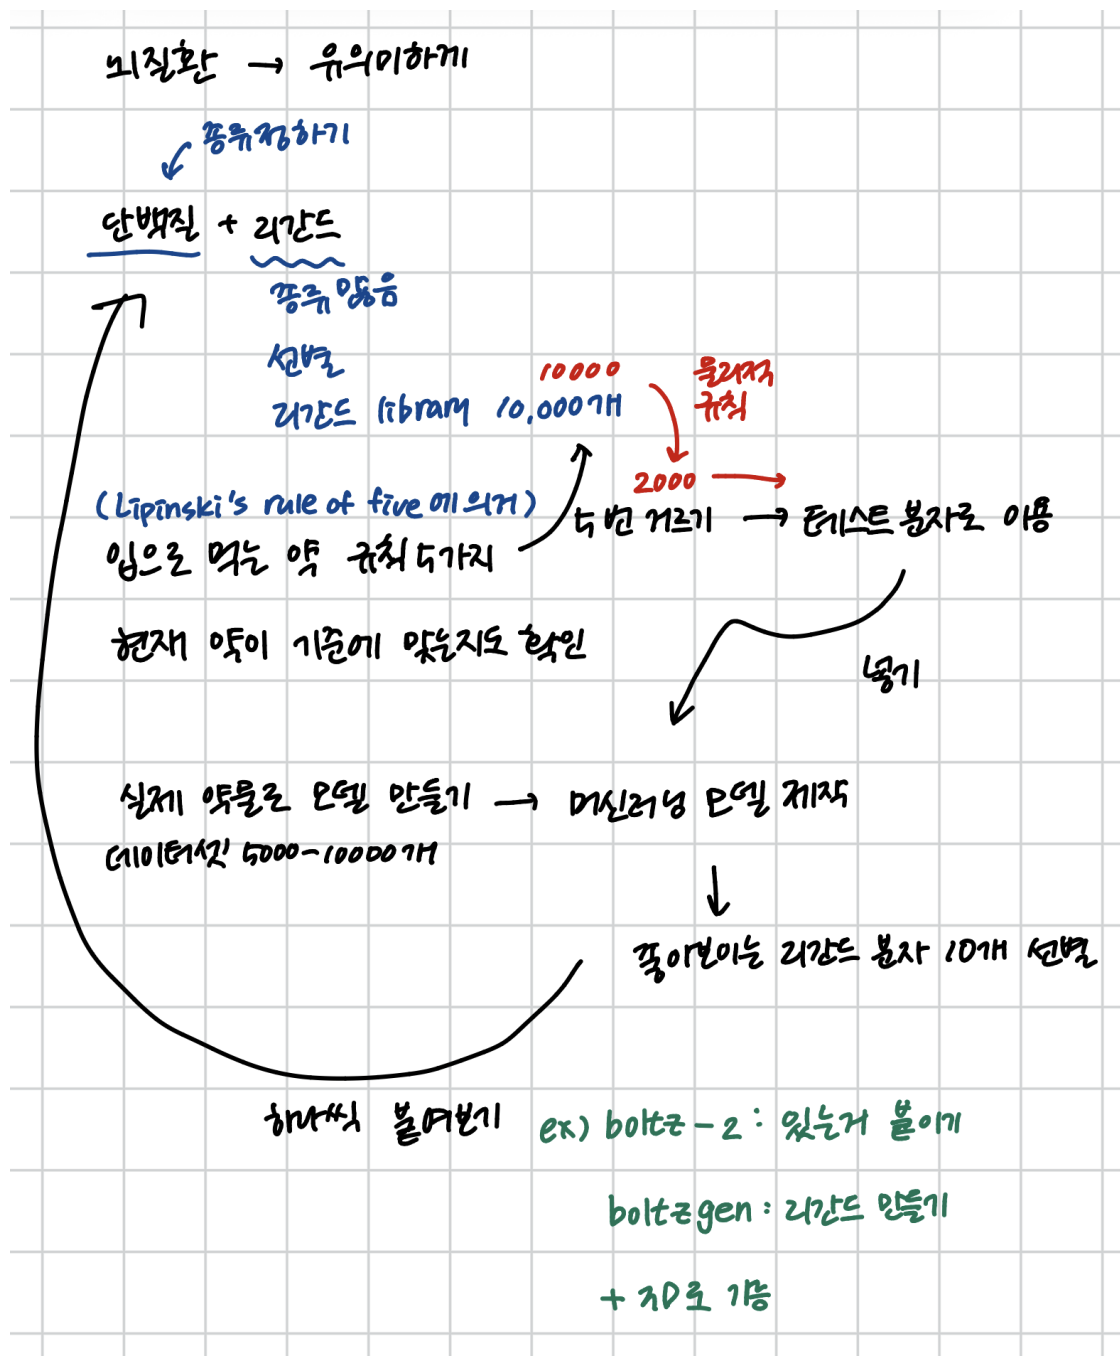 뇌질환 → 유의미하게
종류정하기
단백질 + 리간드
종류 많음
선별
10000 물리적
리간드 library 10,000개 규칙
2000 →
(Lipinski's rule of five에 의거)
5번 거르기 → 테스트 분자로 이용
입으로 먹는 약 규칙 5가지
현재 약이 기준에 맞는지도 확인
넣기
실제 약물로 모델 만들기 → 머신러닝 모델 제작
데이터셋 5000-10000개
좋아보이는 리간드 분자 10개 선별
하나씩 붙여보기
ex) boltz-2 : 있는거 붙이기
boltzgen : 리간드 만들기
+ 3D로 가능